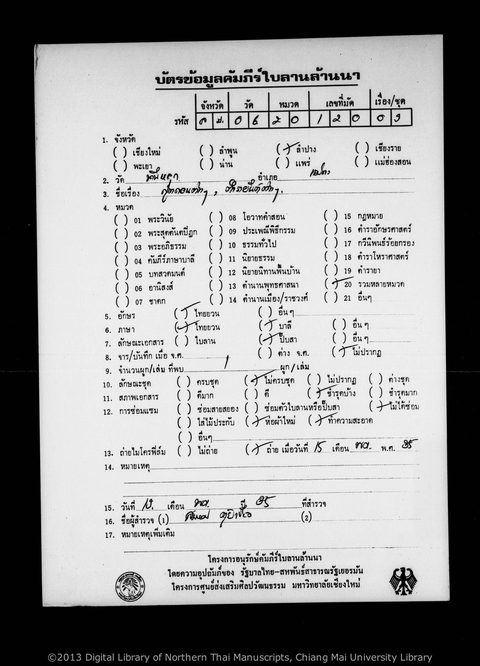 บัตรข้อมูลคัมภีร์ใบลานล้านนา
จังหวัด วัด หมวด เลขที่มัด เรื่อง/ชุด
รหัส ล ป. 0 6 2 0 1 2 0 0 3
1. จังหวัด
( ) เชียงใหม่ ( ) ลำพูน (/) ลำปาง ( ) เชียงราย
( ) พะเยา ( ) น่าน ( ) แพร่ ( ) แม่ฮ่องสอน
2. วัด อำเภอ
3. ชื่อเรื่อง
4. หมวด
( ) 01 พระวินัย ( ) 08 โอวาทคำสอน ( ) 15 กฎหมาย
( ) 02 พระสุตตันตปิฎก ( ) 09 ประเพณีพิธีกรรม ( ) 16 ตำราอักษรศาสตร์
( ) 03 พระอภิธรรม ( ) 10 ธรรมทั่วไป ( ) 17 กวีนิพนธ์ร้อยกรอง
( ) 04 คัมภีร์ภาษาบาลี ( ) 11 นิยายธรรม ( ) 18 ตำราโหราศาสตร์
( ) 05 บทสวดมนต์ ( ) 12 นิยายนิทานพื้นบ้าน ( ) 19 ตำรายา
( ) 06 อานิสงส์ ( ) 13 ตำนานพุทธศาสนา (/) 20 รวมหลายหมวด
( ) 07 ชาดก ( ) 14 ตำนานเมือง/ราชวงศ์ ( ) 21 อื่นๆ
5. อักษร (/) ไทยยวน ( ) อื่น ๆ
6. ภาษา (/) ไทยยวน (/) บาลี ( ) อื่น ๆ
7. ลักษณะเอกสาร ( ) ใบลาน (/) ปั๊บสา ( ) อื่น ๆ
8. จาร/บันทึก เมื่อ จ.ศ. ( ) ต่าง จ.ศ. (/) ไม่ปรากฏ
9. จำนวนผูก/เล่ม ที่พบ 1 ผูก/เล่ม
10. ลักษณะชุด ( ) ครบชุด (/) ไม่ครบชุด ( ) ไม่ปรากฏ ( ) ต่างชุด
11. สภาพเอกสาร ( ) ดีมาก ( ) ดี (/) ชำรุดบ้าง ( ) ชำรุดมาก
12. การซ่อมแซม ( ) ซ่อมสายสยอง ( ) ซ่อมตัวใบลานหรือปั๊บสา (/) ไม่ได้ซ่อม
( ) ใส่ไม้ประกับ (/) ห่อผ้าใหม่ (/) ทำความสะอาด
( ) อื่นๆ
13. ถ่ายไมโครฟิล์ม ( ) ไม่ถ่าย (/) ถ่าย เมื่อวันที่ 15 เดือน พ.ศ. 35
14. หมายเหตุ
15. วันที่ เดือน ปี 35 ที่สำรวจ
16. ชื่อผู้สำรวจ (1) (2)
17. หมายเหตุเพิ่มเติม
โครงการอนุรักษ์คัมภีร์ใบลานล้านนา
โดยความอุปถัมภ์ของ รัฐบาลไทย-สหพันธ์สาธารณรัฐเยอรมัน
โครงการศูนย์ส่งเสริมศิลปวัฒนธรรม มหาวิทยาลัยเชียงใหม่
©2013 Digital Library of Northern Thai Manuscripts, Chiang Mai University Library